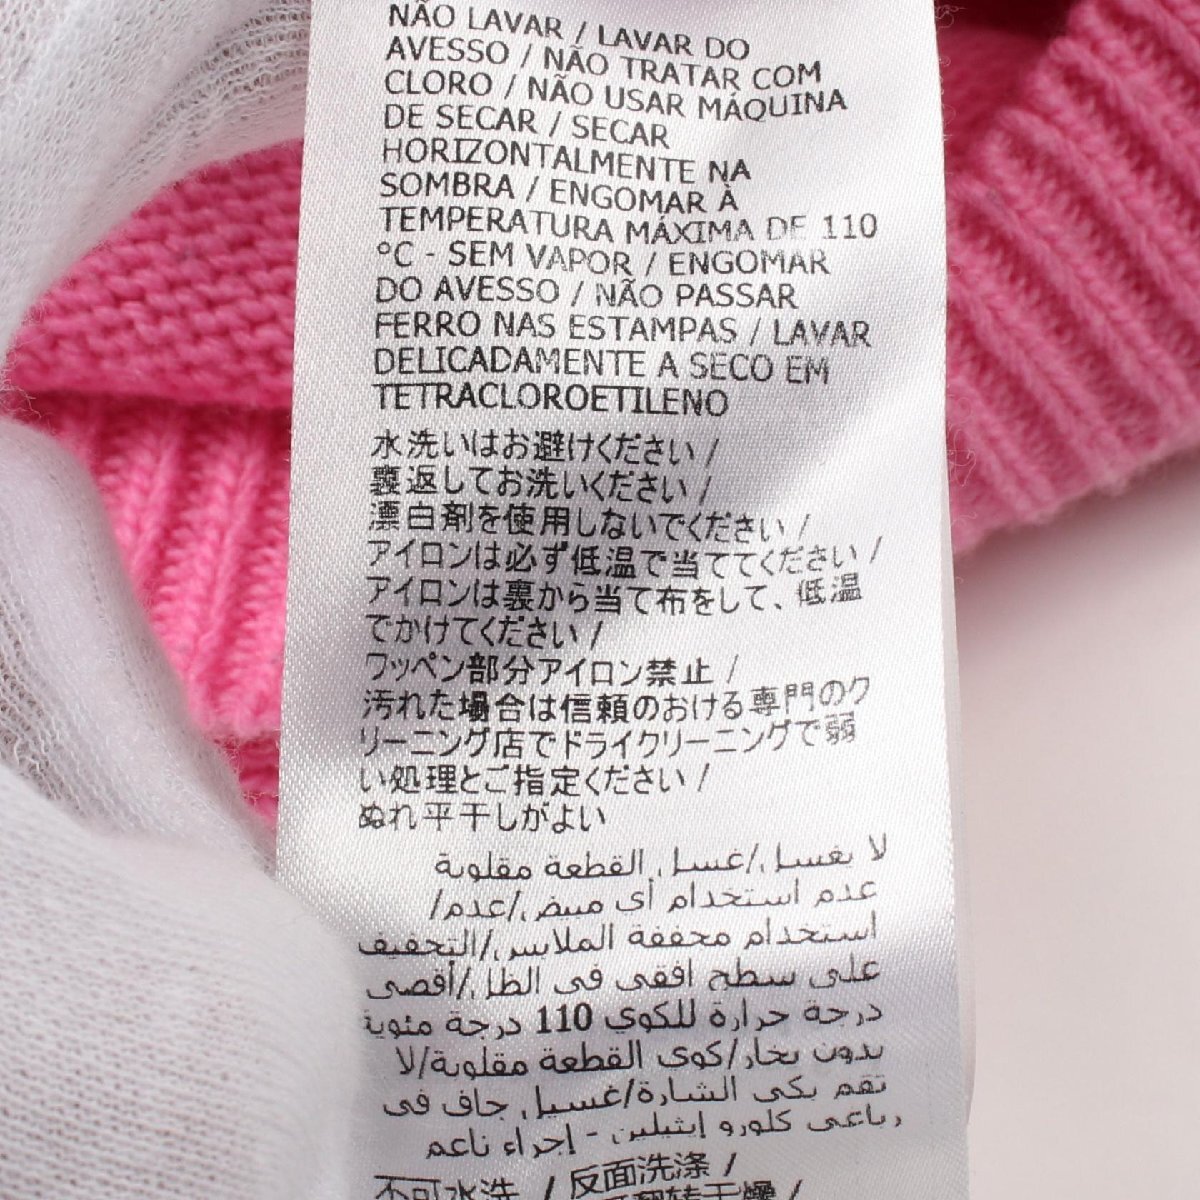 NÃO LAVAR / LAVAR DO
AVESSO / NÃO TRATAR COM
CLORO / NÃO USAR MÁQUINA
DE SECAR / SECAR
HORIZONTALMENTE NA
SOMBRA / ENGOMAR À
TEMPERATURA MÁXIMA DE 110
°C - SEM VAPOR / ENGOMAR
DO AVESSO / NÃO PASSAR
FERRO NAS ESTAMPAS / LAVAR
DELICADAMENTE A SECO EM
TETRACLOROETILENO
水洗いはお避けください /
裏返してお洗いください /
漂白剤を使用しないでください /
アイロンは必ず低温で当ててください /
アイロンは裏から当て布をして、低温
でかけてください /
ワッペン部分アイロン禁止 /
汚れた場合は信頼のおける専門のク
リーニング店でドライクリーニングで弱
い処理とご指定ください /
ぬれ平干しがよい
لا يغسل/غسل القطعة مقلوبة
عدم استخدام أي مبيض/عدم/
استخدام مجففة الملابس/التجفيف
على سطح افقي في الظل/أقصى
درجة حرارة للكوي 110 درجة مئوية
بدون بخار/كوى القطعة مقلوبة/لا
تقم بكى الشارة/غسيل جاف فى
رباعي كلورو إيثيلين - إجراء ناعم
不可水洗 / 反面洗涤 /